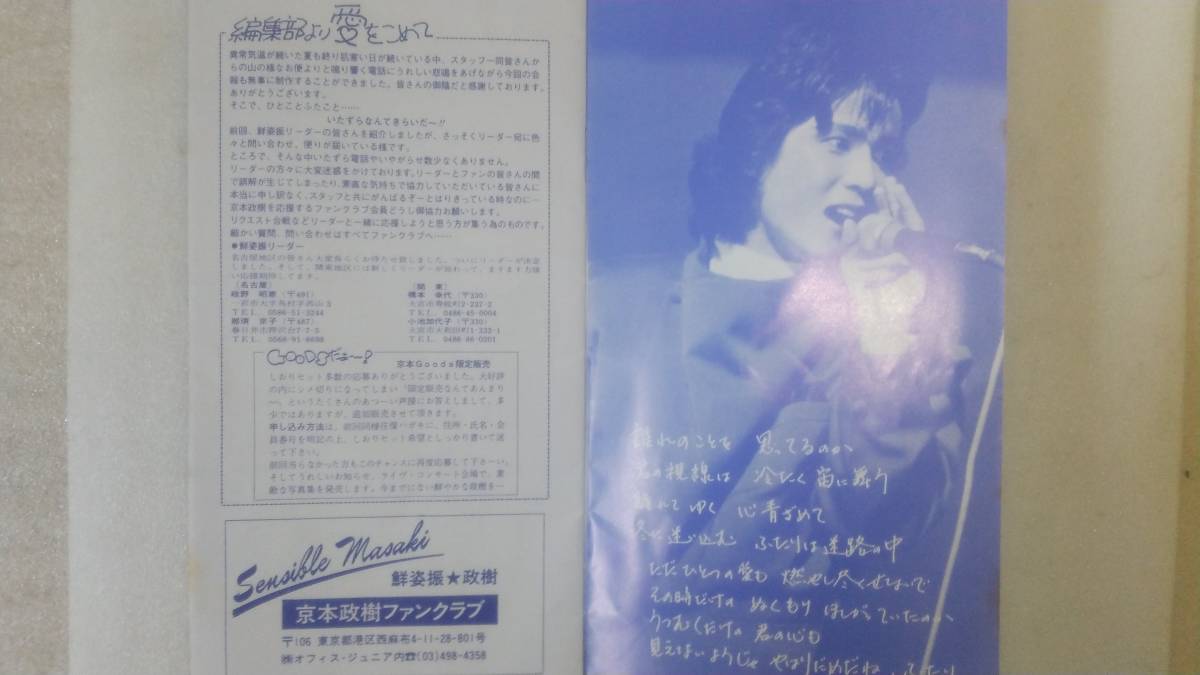 編集部より愛をこめて
異常気温が続いた夏も終り肌寒い日が続いている中、スタッフ一同皆さんか
らの山の様なお便よりと鳴り響く電話にうれしい悲鳴をあげながら今回の会
報も無事に制作することができました。皆さんの御陰だと感謝しております。
ありがとうございます。
そこで、ひとことふたこと……
いたずらなんてきらいだ〜!!
前回、鮮姿振リーダーの皆さんを紹介しましたが、さっそくリーダー宛に色
々と問い合わせ、便りが届いている様です。
ところで、そんな中いたずら電話やいやがらせ数少なくありません。
リーダーの方々に大変迷惑をかけております。リーダーとファンの皆さんの間
で誤解が生じてしまったり、素直な気持ちで協力していただいている皆さんに
本当に申し訳なく、スタッフと共にがんばるぞーとはりきっている時なのに…
京本政樹を応援するファンクラブ会員どうし御協力お願いします。
リクエスト合戦などリーダーと一緒に応援しようと思う方が集う為のものです。
細かい質問、問い合わせはすべてファンクラブへ……
●鮮姿振リーダー
名古屋地区の皆さん大変長らくお待たせ致しました。ついにリーダーが決定
しました。そして、関東地区には新しくリーダーが加わって、ますます力強
い応援期待してます。
〔名古屋〕
〔関 東〕
GOODSだよ〜!
京本Goods限定販売
しおりセット多数の応募ありがとうございました。大好評
の内にシメ切りになってしまい「限定販売なんてあんまり
〜」というたくさんのあつーい声援にお答えしまして、多
少ではありますが、追加販売させて頂きます。
申し込み方法は、前回同様往復ハガキに、住所・氏名・会
員番号を明記の上、しおりセット希望としっかり書いて送
って下さい。
前回当らなかった方もこのチャンスに再度応募して下さーい。
そしてうれしいお知らせ、ライヴ・コンサート会場で、素
敵な写真集を発売します。今までにない鮮やかな政樹を…
Sensible Masaki
鮮姿振★政樹
京本政樹ファンクラブ
〒106 東京都港区西麻布4-11-28-801号
㈱オフィス・ジュニア内☎(03)498-4358
誰れのことを 思ってるのか
君の視線は 冷たく宙に舞う
離れてゆく 心青ざめて
冬に迷い込む ふたりは迷路の中
ただひとつの愛も 燃やし尽くせないで
その時だけの ぬくもり ほしがっていたのか
うつむくだけの 君の心も
見えないようじゃ やはりだめだね ふたり